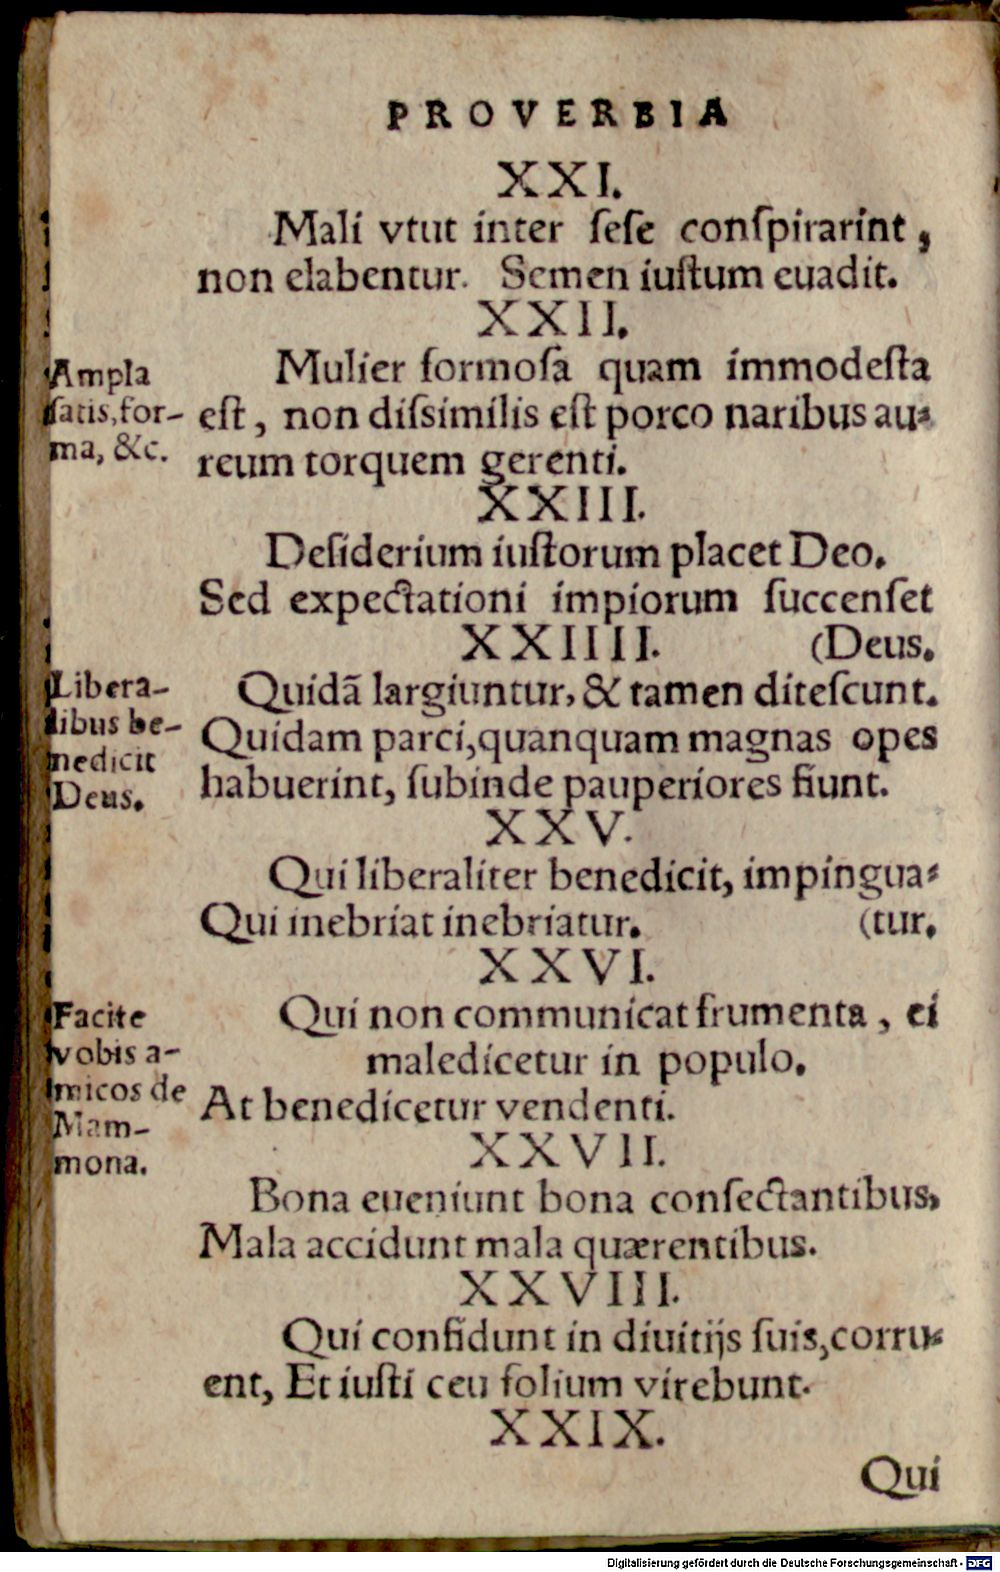 PROVERBIA
XXI.
Mali vtut inter ſeſe conſpirarint,
non elabentur. Semen iuſtum euadit.
XXII.
Ampla
ſatis,for-
ma, &c.
Mulier formoſa quam immodeſta
eſt, non diſsimilis eſt porco naribus au⸗
reum torquem gerenti.
XXIII.
Deſiderium iuſtorum placet Deo.
Sed expectationi impiorum ſuccenſet
XXIIII. (Deus.
Libera-
libus be-
nedicit
Deus.
Quidã largiuntur, & tamen diteſcunt.
Quidam parci, quanquam magnas opes
habuerint, ſubinde pauperiores fiunt.
XXV.
Qui liberaliter benedicit, impingua⸗
Qui inebriat inebriatur. (tur.
XXVI.
Facite
vobis a-
micos de
Mam-
mona.
Qui non communicat frumenta, ei
maledicetur in populo.
At benedicetur vendenti.
XXVII.
Bona eueniunt bona conſectantibus,
Mala accidunt mala quærentibus.
XXVIII.
Qui confidunt in diuitijs ſuis, corru⸗
ent, Et iuſti ceu folium virebunt.
XXIX.
Qui
Digitalisierung gefördert durch die Deutsche Forschungsgemeinschaft - DFG